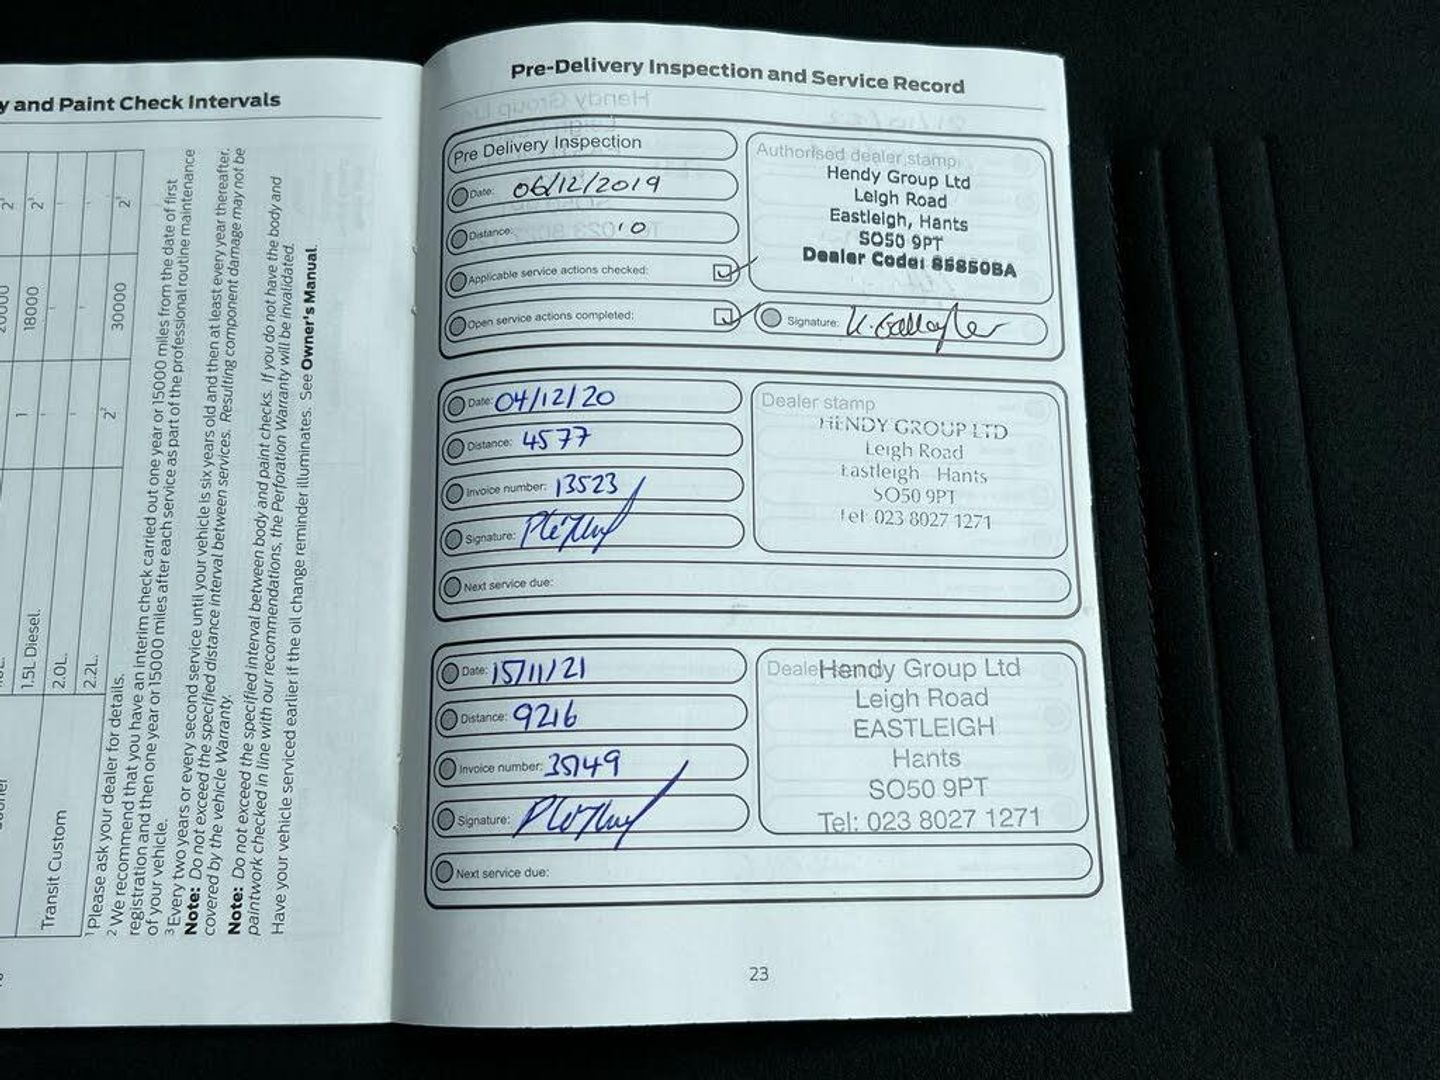 y and Paint Check Intervals
2³
20000
2³
18000
1
1.5L Diesel.
2.0L.
2²
30000
2²
2.2L.
Transit Custom
¹ Please ask your dealer for details.
² We recommend that you have an interim check carried out one year or 15000 miles from the date of first
registration and then one year or 15000 miles after each service as part of the professional routine maintenance
of your vehicle.
³ Every two years or every second service until your vehicle is six years old and then at least every year thereafter.
Note: Do not exceed the specified distance interval between services. Resulting component damage may not be
covered by the vehicle Warranty.
Note: Do not exceed the specified interval between body and paint checks. If you do not have the body and
paintwork checked in line with our recommendations, the Perforation Warranty will be invalidated.
Have your vehicle serviced earlier if the oil change reminder illuminates. See Owner's Manual.
Pre-Delivery Inspection and Service Record
Pre Delivery Inspection
Date: 06/12/2019
Distance: 10
Applicable service actions checked:
Open service actions completed:
Authorised dealer stamp
Hendy Group Ltd
Leigh Road
Eastleigh, Hants
SO50 9PT
Dealer Code: 85850BA
Signature: K. Gallagher
Date: 04/12/20
Distance: 4577
Invoice number: 13523
Signature:
Next service due:
Dealer stamp
HENDY GROUP LTD
Leigh Road
Eastleigh Hants
SO50 9PT
Tel: 023 8027 1271
Date: 15/11/21
Distance: 9216
Invoice number: 35149
Signature:
Next service due:
Hendy Group Ltd
Leigh Road
EASTLEIGH
Hants
SO50 9PT
Tel: 023 8027 1271
23